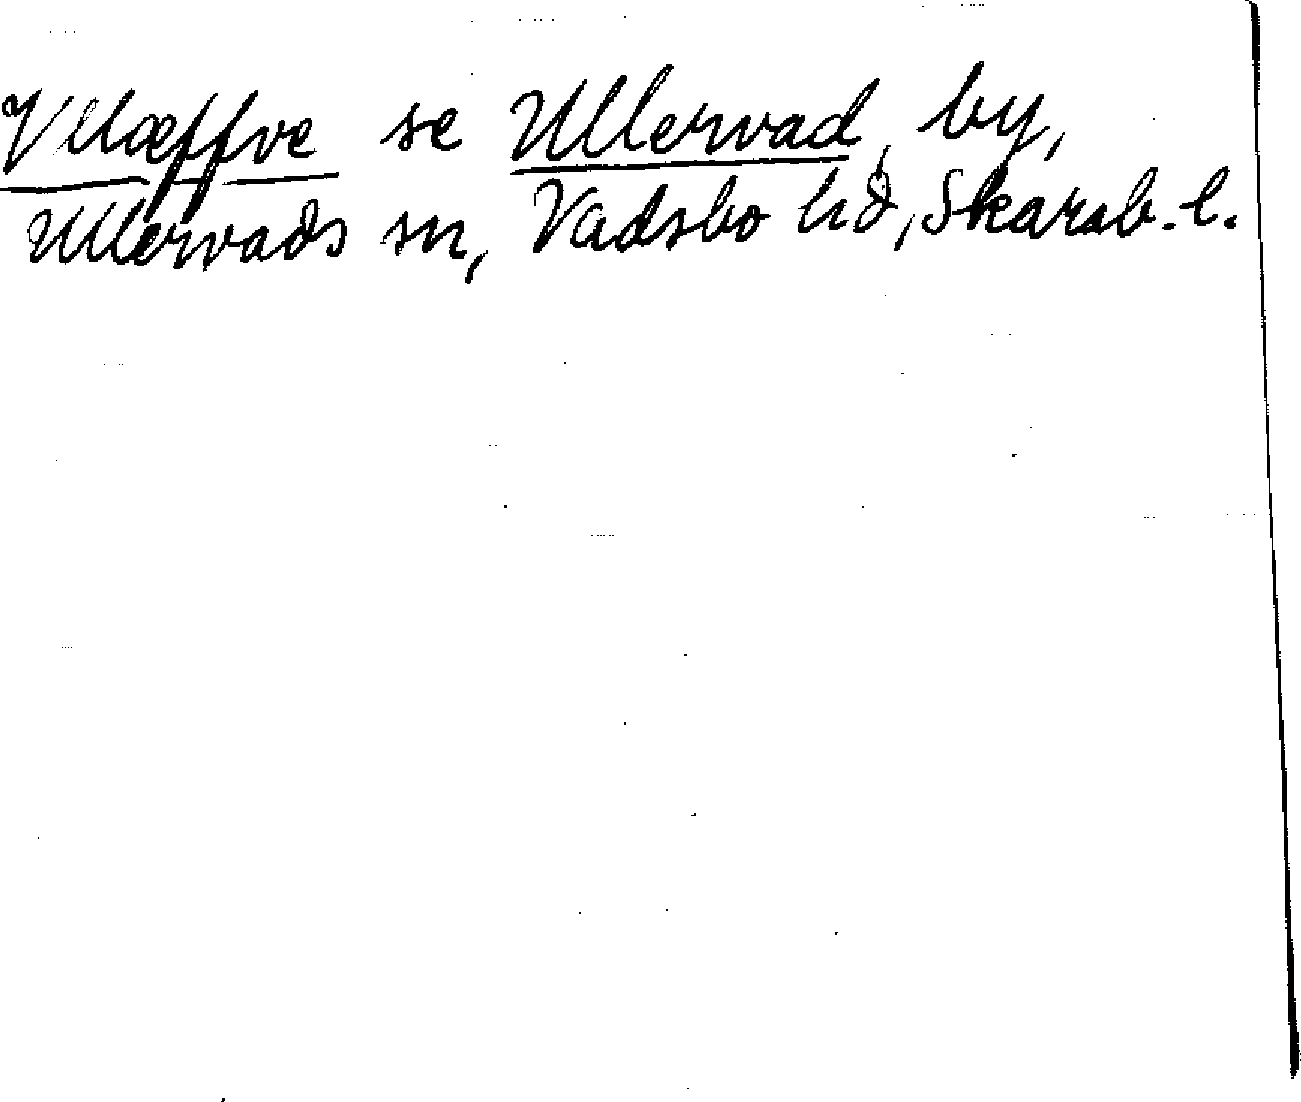 Vllæffve se Ullervad, by,
Ullervads sn, Vadsbo hd, Skarab.l.